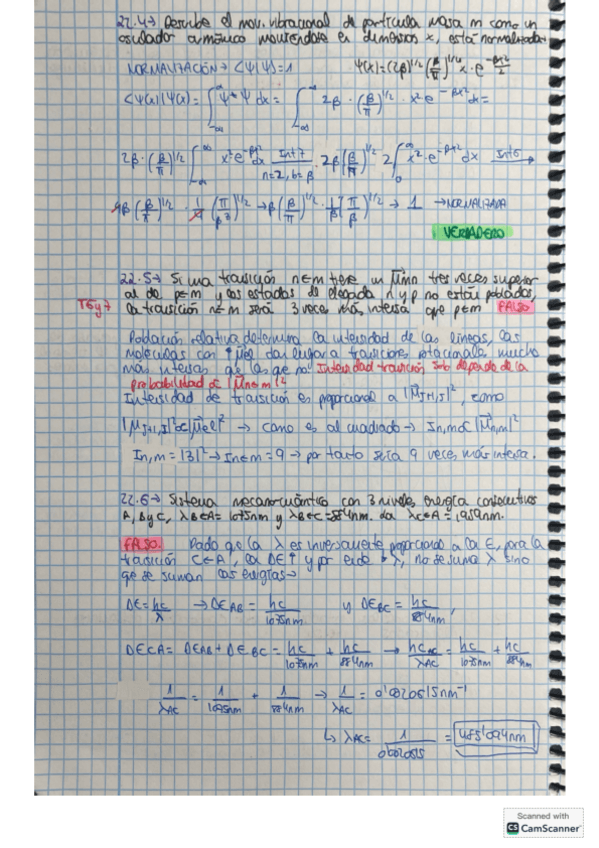 22.4→ Describe el mov. vibracional de partícula masa m como un
oscilador armónico moviéndose en dimensión x, está normalizada
NORMALIZACIÓN → <Ψ|Ψ>=1 Ψ(x)=(2β)^1/2 (β/π)^1/4 x·e^-βx²/2
<Ψ(x)|Ψ(x)> = ∫_-∞^∞ Ψ*Ψ dx = ∫_-∞^∞ 2β·(β/π)^1/2·x²e^-βx² dx =
2β·(β/π)^1/2 ∫_-∞^∞ x²e^-βx² dx Int 7 n=2, b=β 2β(β/π)^1/2 2∫_0^∞ x²·e^-βx² dx Int 6 →
4β(β/π)^1/2 · 1/4 (π/β³)^1/2 → β(β/π)^1/2 · 1/β (π/β)^1/2 → 1 → NORMALIZADA
VERDADERO
22.5→ Si una transición n←m tiene un μ⃗mn tres veces superior
al de p←m y los estados de llegada n y p no están poblados,
T6y7 la transición n←m será 3 veces más intensa que p←m FALSO
Población relativa determina la intensidad de las líneas, las
moléculas con ↑μ⃗el dan lugar a transiciones rotacionales mucho
más intensas que las que no. Intensidad transición solo depende de la
probabilidad α |μn←m|²
Intensidad de transición es proporcional a |μ⃗J+1,J|², como
|μJ+1,J|² α |μ⃗el|² → como es al cuadrado → In,m α |μ⃗n,m|²
In,m = |3|² → In←m = 9 → por tanto sería 9 veces más intensa.
22.6→ Sistema mecanocuántico con 3 niveles energía consecutivos
A, B y C, λB←A = 1075nm y λB←C = 884nm. da λC←A = 1959nm.
FALSO. Dado que la λ es inversamente proporcional a la E, para la
transición C←A, la DE↑ y por ende ↓λ, no se suma λ sino
que se suman las energías→
DE = hc/λ → DE AB = hc/1075nm y DE BC = hc/884nm,
DE CA = DE AB + DE BC = hc/1075nm + hc/884nm → hc/λAC = hc/1075nm + hc/884nm
1/λAC = 1/1075nm + 1/884nm → 1/λAC = 0'0020615nm⁻¹
↳ λAC = 1/0'0020615 = 485'094nm
Scanned with
CS CamScanner